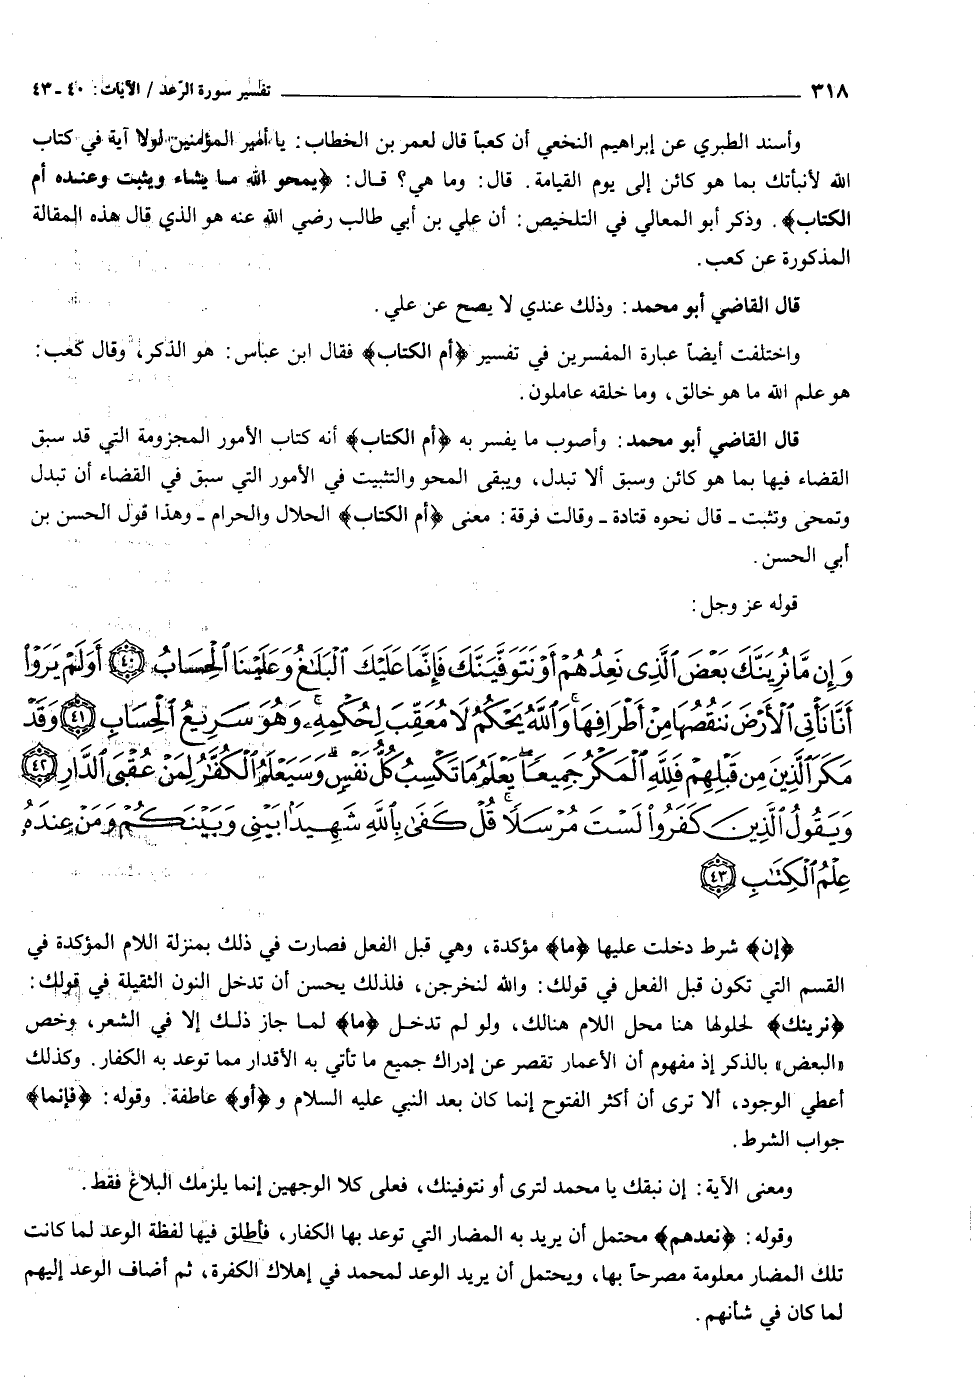 ٣١٨ تفسير سورة الرّعد / الآيات: ٤٠ ـ ٤٣
وأسند الطبري عن إبراهيم النخعي أن كعباً قال لعمر بن الخطاب: يا أمير المؤمنين لولا آية في كتاب
الله لأنبأتك بما هو كائن إلى يوم القيامة. قال: وما هي؟ قال: ﴿يمحو الله ما يشاء ويثبت وعنده أم
الكتاب﴾. وذكر أبو المعالي في التلخيص: أن علي بن أبي طالب رضي الله عنه هو الذي قال هذه المقالة
المذكورة عن كعب.
قال القاضي أبو محمد: وذلك عندي لا يصح عن علي.
واختلفت أيضاً عبارة المفسرين في تفسير ﴿أم الكتاب﴾ فقال ابن عباس: هو الذكر، وقال كعب:
هو علم الله ما هو خالق، وما خلقه عاملون.
قال القاضي أبو محمد: وأصوب ما يفسر به ﴿أم الكتاب﴾ أنه كتاب الأمور المجزومة التي قد سبق
القضاء فيها بما هو كائن وسبق ألا تبدل، ويبقى المحو والتثبيت في الأمور التي سبق في القضاء أن تبدل
وتمحى وتثبت ـ قال نحوه قتادة ـ وقالت فرقة: معنى ﴿أم الكتاب﴾ الحلال والحرام ـ وهذا قول الحسن بن
أبي الحسن.
قوله عز وجل:
وَإِن مَّا نُرِيَنَّكَ بَعْضَ ٱلَّذِى نَعِدُهُمْ أَوْ نَتَوَفَّيَنَّكَ فَإِنَّمَا عَلَيْكَ ٱلْبَلَـٰغُ وَعَلَيْنَا ٱلْحِسَابُ ﴿٤٠﴾ أَوَلَمْ يَرَوْا۟
أَنَّا نَأْتِى ٱلْأَرْضَ نَنقُصُهَا مِنْ أَطْرَافِهَا ۚ وَٱللَّهُ يَحْكُمُ لَا مُعَقِّبَ لِحُكْمِهِۦ ۚ وَهُوَ سَرِيعُ ٱلْحِسَابِ ﴿٤١﴾ وَقَدْ
مَكَرَ ٱلَّذِينَ مِن قَبْلِهِمْ فَلِلَّهِ ٱلْمَكْرُ جَمِيعًا ۖ يَعْلَمُ مَا تَكْسِبُ كُلُّ نَفْسٍ ۗ وَسَيَعْلَمُ ٱلْكُفَّـٰرُ لِمَنْ عُقْبَى ٱلدَّارِ ﴿٤٢﴾
وَيَقُولُ ٱلَّذِينَ كَفَرُوا۟ لَسْتَ مُرْسَلًا ۚ قُلْ كَفَىٰ بِٱللَّهِ شَهِيدًۢا بَيْنِى وَبَيْنَكُمْ وَمَنْ عِندَهُۥ
عِلْمُ ٱلْكِتَـٰبِ ﴿٤٣﴾
﴿إن﴾ شرط دخلت عليها ﴿ما﴾ مؤكدة، وهي قبل الفعل فصارت في ذلك بمنزلة اللام المؤكدة في
القسم التي تكون قبل الفعل في قولك: والله لنخرجن، فلذلك يحسن أن تدخل النون الثقيلة في قولك:
﴿نرينك﴾ لحلولها هنا محل اللام هنالك، ولو لم تدخل ﴿ما﴾ لما جاز ذلك إلا في الشعر، وخص
«البعض» بالذكر إذ مفهوم أن الأعمار تقصر عن إدراك جميع ما تأتي به الأقدار مما توعد به الكفار. وكذلك
أعطي الوجود، ألا ترى أن أكثر الفتوح إنما كان بعد النبي عليه السلام و﴿أو﴾ عاطفة. وقوله: ﴿فإنما﴾
جواب الشرط.
ومعنى الآية: إن نبقك يا محمد لترى أو نتوفينك، فعلى كلا الوجهين إنما يلزمك البلاغ فقط.
وقوله: ﴿نعدهم﴾ محتمل أن يريد به المضار التي توعد بها الكفار، فأطلق فيها لفظة الوعد لما كانت
تلك المضار معلومة مصرحاً بها، ويحتمل أن يريد الوعد لمحمد في إهلاك الكفرة، ثم أضاف الوعد إليهم
لما كان في شأنهم.